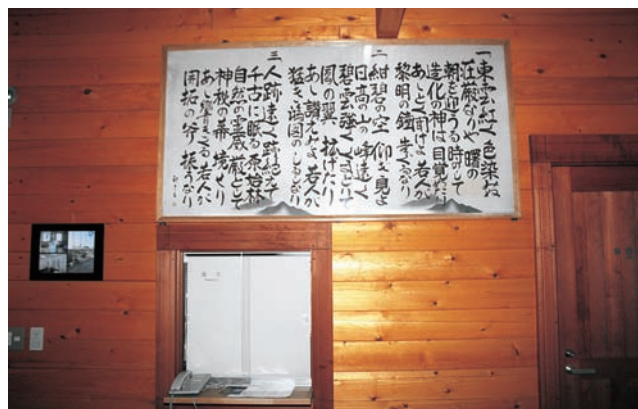 一 東雲紅く色染めぬ
荘厳なりや 曙の
朝を迎うる時にして
造化の神は目覚めたり
あゝとく聞けよ 若人が
黎明の鐘 なり
二 紺碧の空 仰ぎ見よ
日高の山の峰遠く
碧雲強く として
鳳の翼 拡げたり
あゝ讃えかよ 若人が
猛き鴻図のしるしなり
三 人跡遠く跡絶えて
千古に眠る原始林
自然の霊蔵 厳として
神秘の扉 せり
あゝ響きくる若人が
開拓の斧 振うなり